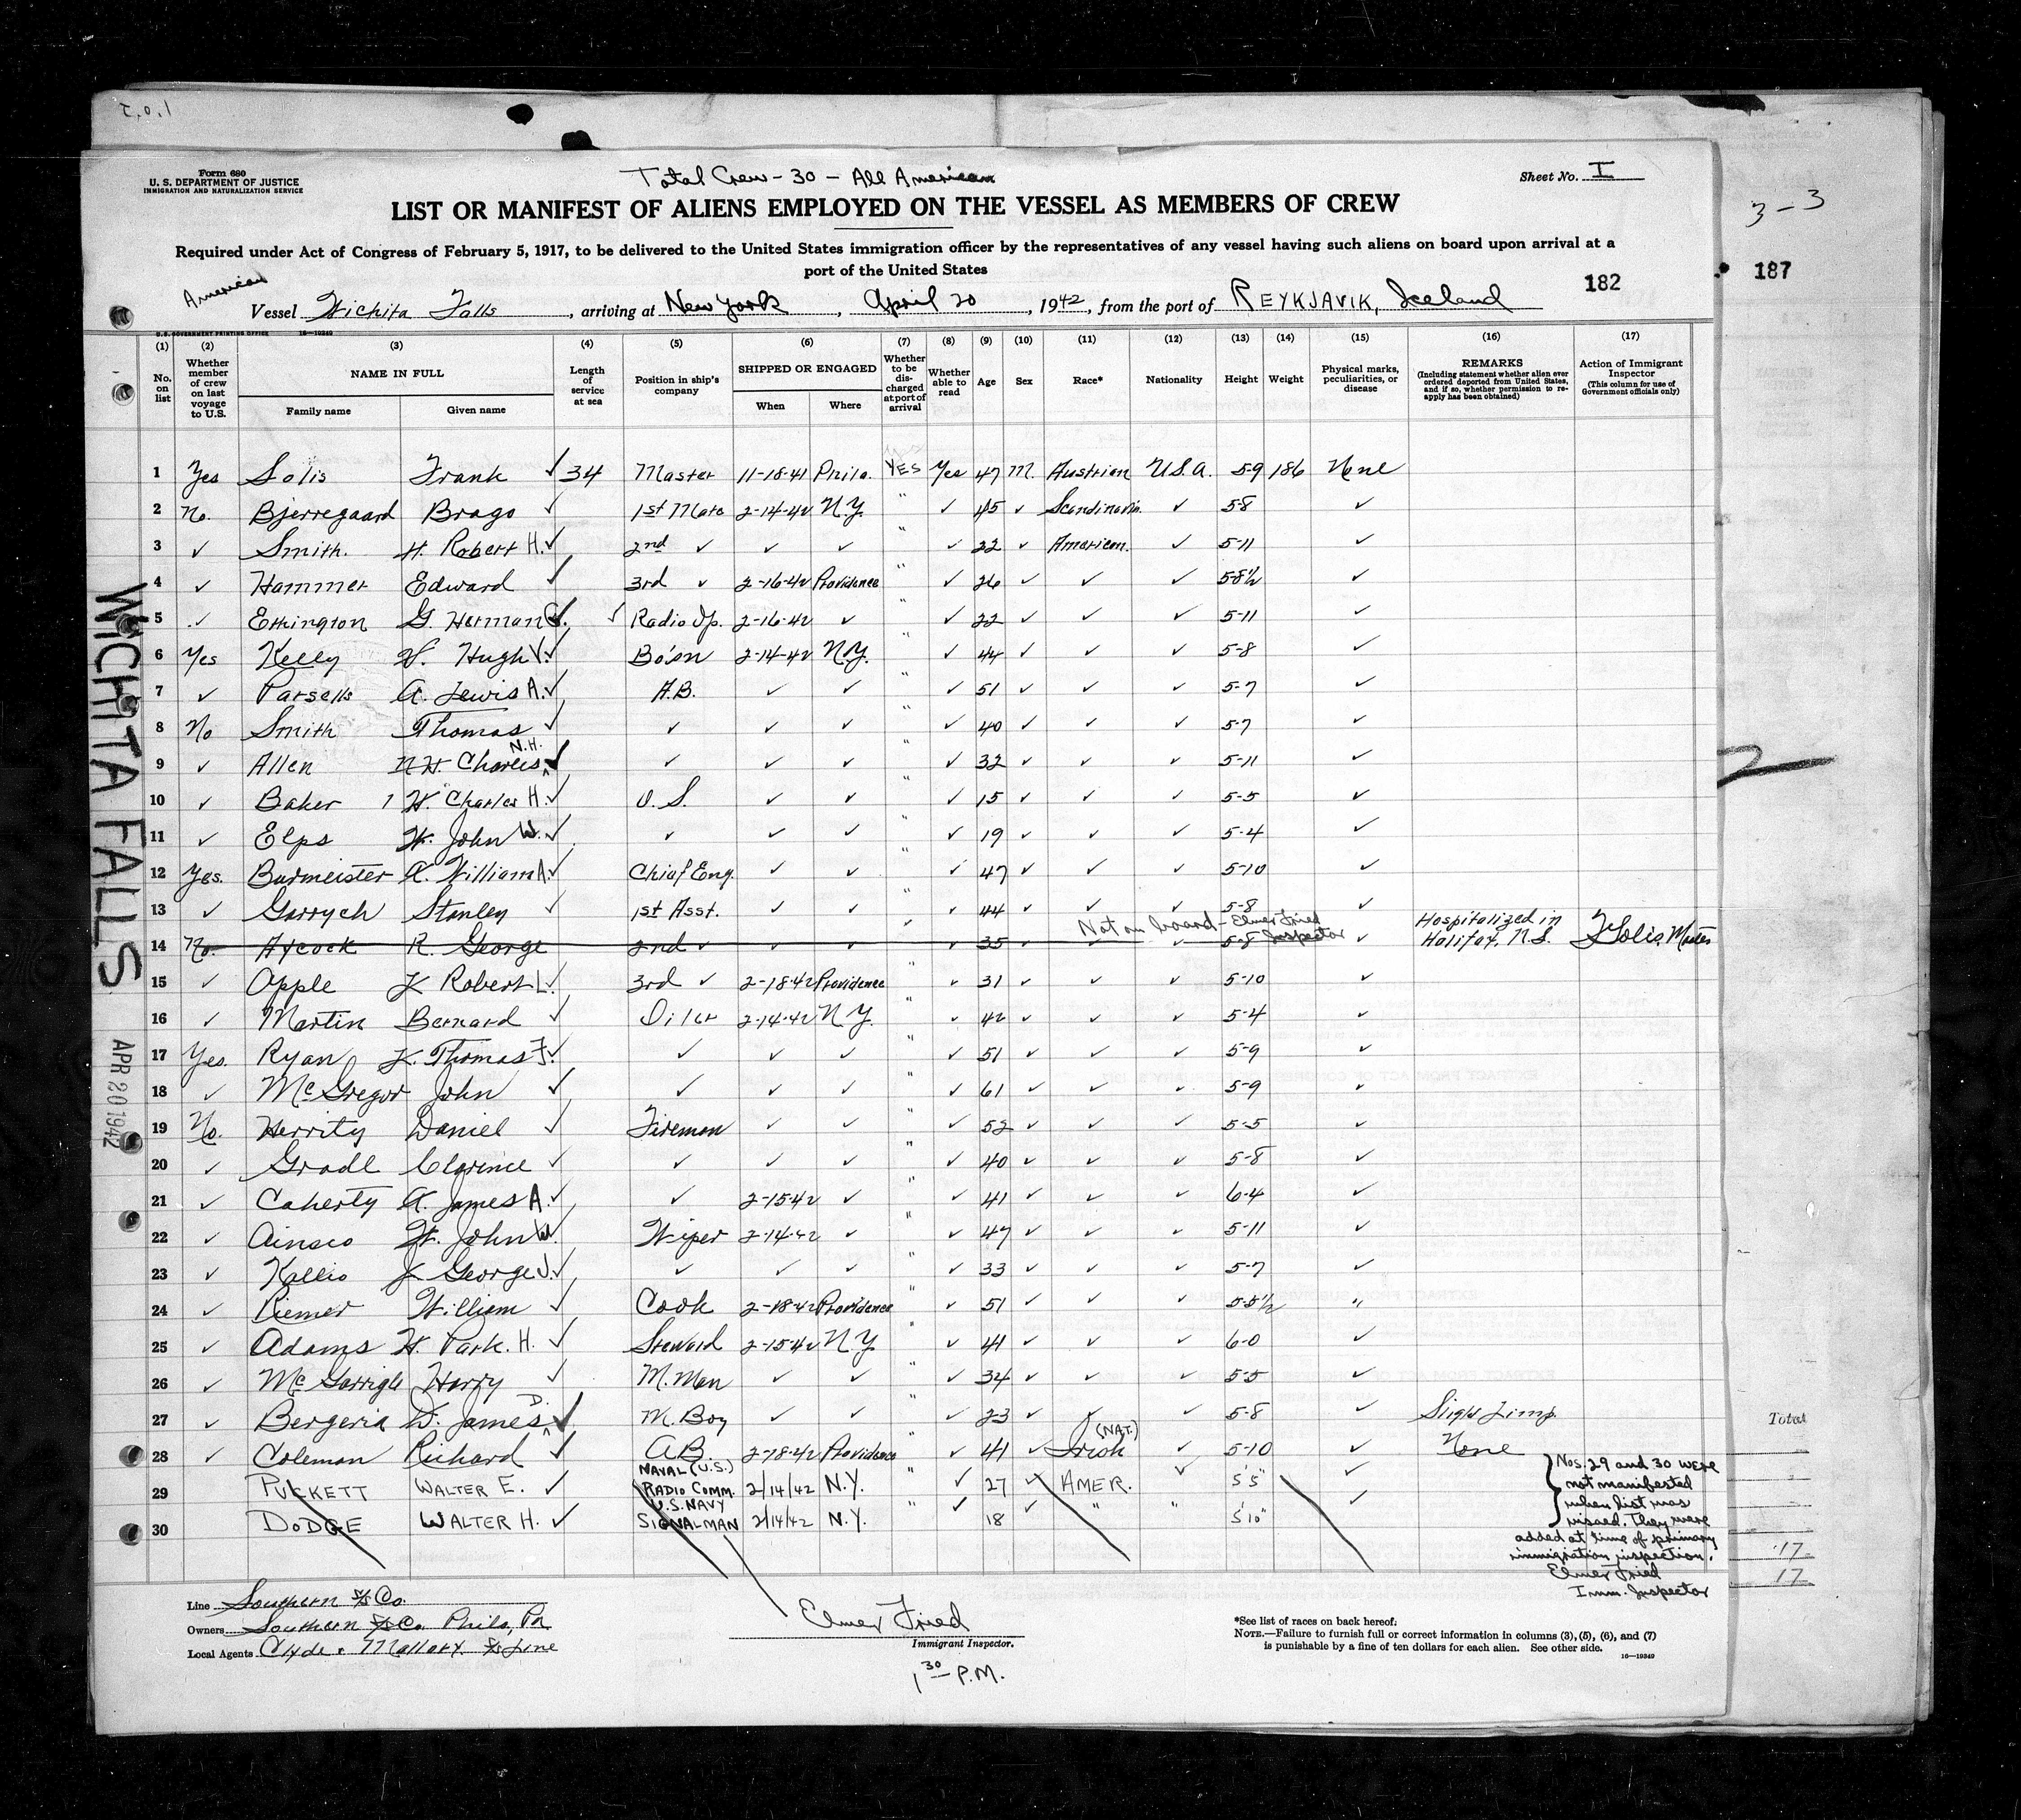 Form 680
U. S. DEPARTMENT OF JUSTICE
IMMIGRATION AND NATURALIZATION SERVICE
Total Crew - 30 - All American
Sheet No. I
LIST OR MANIFEST OF ALIENS EMPLOYED ON THE VESSEL AS MEMBERS OF CREW
3-3
Required under Act of Congress of February 5, 1917, to be delivered to the United States immigration officer by the representatives of any vessel having such aliens on board upon arrival at a
port of the United States
182
187
American
Vessel Wichita Falls, arriving at New York, April 20, 1942, from the port of REYKJAVIK, Iceland
U.S. GOVERNMENT PRINTING OFFICE 16-19349
(1) (2) (3) (4) (5) (6) (7) (8) (9) (10) (11) (12) (13) (14) (15) (16) (17)
No. on list
Whether member of crew on last voyage to U.S.
NAME IN FULL
Family name Given name
Length of service at sea
Position in ship's company
SHIPPED OR ENGAGED
When Where
Whether to be discharged at port of arrival
Whether able to read
Age
Sex
Race*
Nationality
Height
Weight
Physical marks, peculiarities, or disease
REMARKS
(Including statement whether alien ever ordered deported from United States, and if so, whether permission to reapply has been obtained)
Action of Immigrant Inspector
(This column for use of Government officials only)
1 Yes Solis Frank ✓ 34 Master 11-18-41 Phila. YES Yes 47 M. Austrian U.S.A. 5-9 186 None
2 No. Bjerregaard Brago ✓ 1st Mate 2-14-42 N.Y. " ✓ 45 ✓ Scandinavia. ✓ 5-8 ✓
3 ✓ Smith. H. Robert H. ✓ 2nd ✓ ✓ ✓ " ✓ 22 ✓ American. ✓ 5-11 ✓
4 ✓ Hammer Edward ✓ 3rd ✓ 2-16-42 Providence " ✓ 26 ✓ ✓ ✓ 5-8½ ✓
5 ✓ Ethington G. Herman G. ✓ Radio Op. 2-16-42 ✓ " ✓ 22 ✓ ✓ ✓ 5-11 ✓
6 Yes Kelly V. Hugh V. ✓ Bo'sn 2-14-42 N.Y. " ✓ 44 ✓ ✓ ✓ 5-8 ✓
7 ✓ Parsells A. Lewis A. ✓ A.B. ✓ ✓ " ✓ 51 ✓ ✓ ✓ 5-7 ✓
8 No Smith Thomas ✓ ✓ ✓ ✓ " ✓ 40 ✓ ✓ ✓ 5-7 ✓
9 ✓ Allen N.H. Charles N.H. ✓ ✓ ✓ ✓ " ✓ 32 ✓ ✓ ✓ 5-11 ✓
10 ✓ Baker H. Charles H. ✓ O.S. ✓ ✓ " ✓ 15 ✓ ✓ ✓ 5-5 ✓
11 ✓ Elps W. John W. ✓ ✓ ✓ ✓ " ✓ 19 ✓ ✓ ✓ 5-4 ✓
12 Yes. Burmeister A. William A. ✓ Chief Eng. ✓ ✓ " ✓ 47 ✓ ✓ ✓ 5-10 ✓
13 ✓ Garrych Stanley ✓ 1st Asst. ✓ ✓ " ✓ 44 ✓ ✓ ✓ 5-8 ✓
Not on board - Elmer Fried Inspector
14 No. Aycock R. George 2nd ✓ ✓ ✓ ✓ 35 ✓ ✓ ✓ 5-8 ✓ Hospitalized in Halifax, N.S. F Solis, Master
15 ✓ Apple L Robert L. 3rd ✓ 2-18-42 Providence ✓ 31 ✓ ✓ ✓ 5-10 ✓
16 ✓ Martin Bernard ✓ Oiler 2-14-42 N.Y. " ✓ 42 ✓ ✓ ✓ 5-4 ✓
17 Yes. Ryan F. Thomas F. ✓ ✓ ✓ ✓ " ✓ 51 ✓ ✓ ✓ 5-9 ✓
18 ✓ McGregor John ✓ ✓ ✓ ✓ " ✓ 61 ✓ ✓ ✓ 5-9 ✓
19 No. Herrity Daniel ✓ Fireman ✓ ✓ " ✓ 52 ✓ ✓ ✓ 5-5 ✓
20 ✓ Gradl Clarence ✓ ✓ ✓ ✓ " ✓ 40 ✓ ✓ ✓ 5-8 ✓
21 ✓ Caherty A. James A. ✓ ✓ 2-15-42 ✓ " ✓ 41 ✓ ✓ ✓ 6-4 ✓
22 ✓ Ainsco W. John W. Wiper 2-14-42 ✓ " ✓ 47 ✓ ✓ ✓ 5-11 ✓
23 ✓ Kallio J George J. ✓ ✓ ✓ ✓ " ✓ 33 ✓ ✓ ✓ 5-7 ✓
24 ✓ Riemer William ✓ Cook 2-18-42 Providence " ✓ 51 ✓ ✓ ✓ 5-5½ "
25 ✓ Adams H. Park. H. ✓ Steward 2-15-42 N.Y " ✓ 41 ✓ ✓ ✓ 6-0 ✓
26 ✓ McGarrigle Harry ✓ M. Man ✓ ✓ " ✓ 34 ✓ ✓ ✓ 5-5 ✓
27 ✓ Bergeria D. James D. ✓ M. Boy ✓ ✓ " ✓ 23 ✓ ✓ ✓ 5-8 ✓ Limp
28 ✓ Coleman Richard ✓ A.B. 2-18-42 Providence " ✓ 41 ✓ Irish (NAT.) ✓ 5-10 ✓ None
29 PUCKETT WALTER E. ✓ NAVAL (U.S.) RADIO COMM. 2/14/42 N.Y. " ✓ 27 ✓ AMER. ✓ 5'5" ✓
30 DODGE WALTER H. ✓ U.S. NAVY SIGNALMAN 2/14/42 N.Y. " ✓ 18 ✓ " " 5'10" ✓
Nos. 29 and 30 were
not manifested
when list was
visaed. They were
added at time of primary
immigration inspection.
Elmer Fried
Imm. Inspector
WICHITA FALLS
APR 20 1942
2
Total
17
17
Line Southern S/S Co.
Owners Southern S/S Co. Phila, Pa
Local Agents Clyde & Mallory S/S Line
Elmer Fried
Immigrant Inspector.
1 30 P.M.
*See list of races on back hereof.
NOTE.—Failure to furnish full or correct information in columns (3), (5), (6), and (7)
is punishable by a fine of ten dollars for each alien. See other side.
16—19349